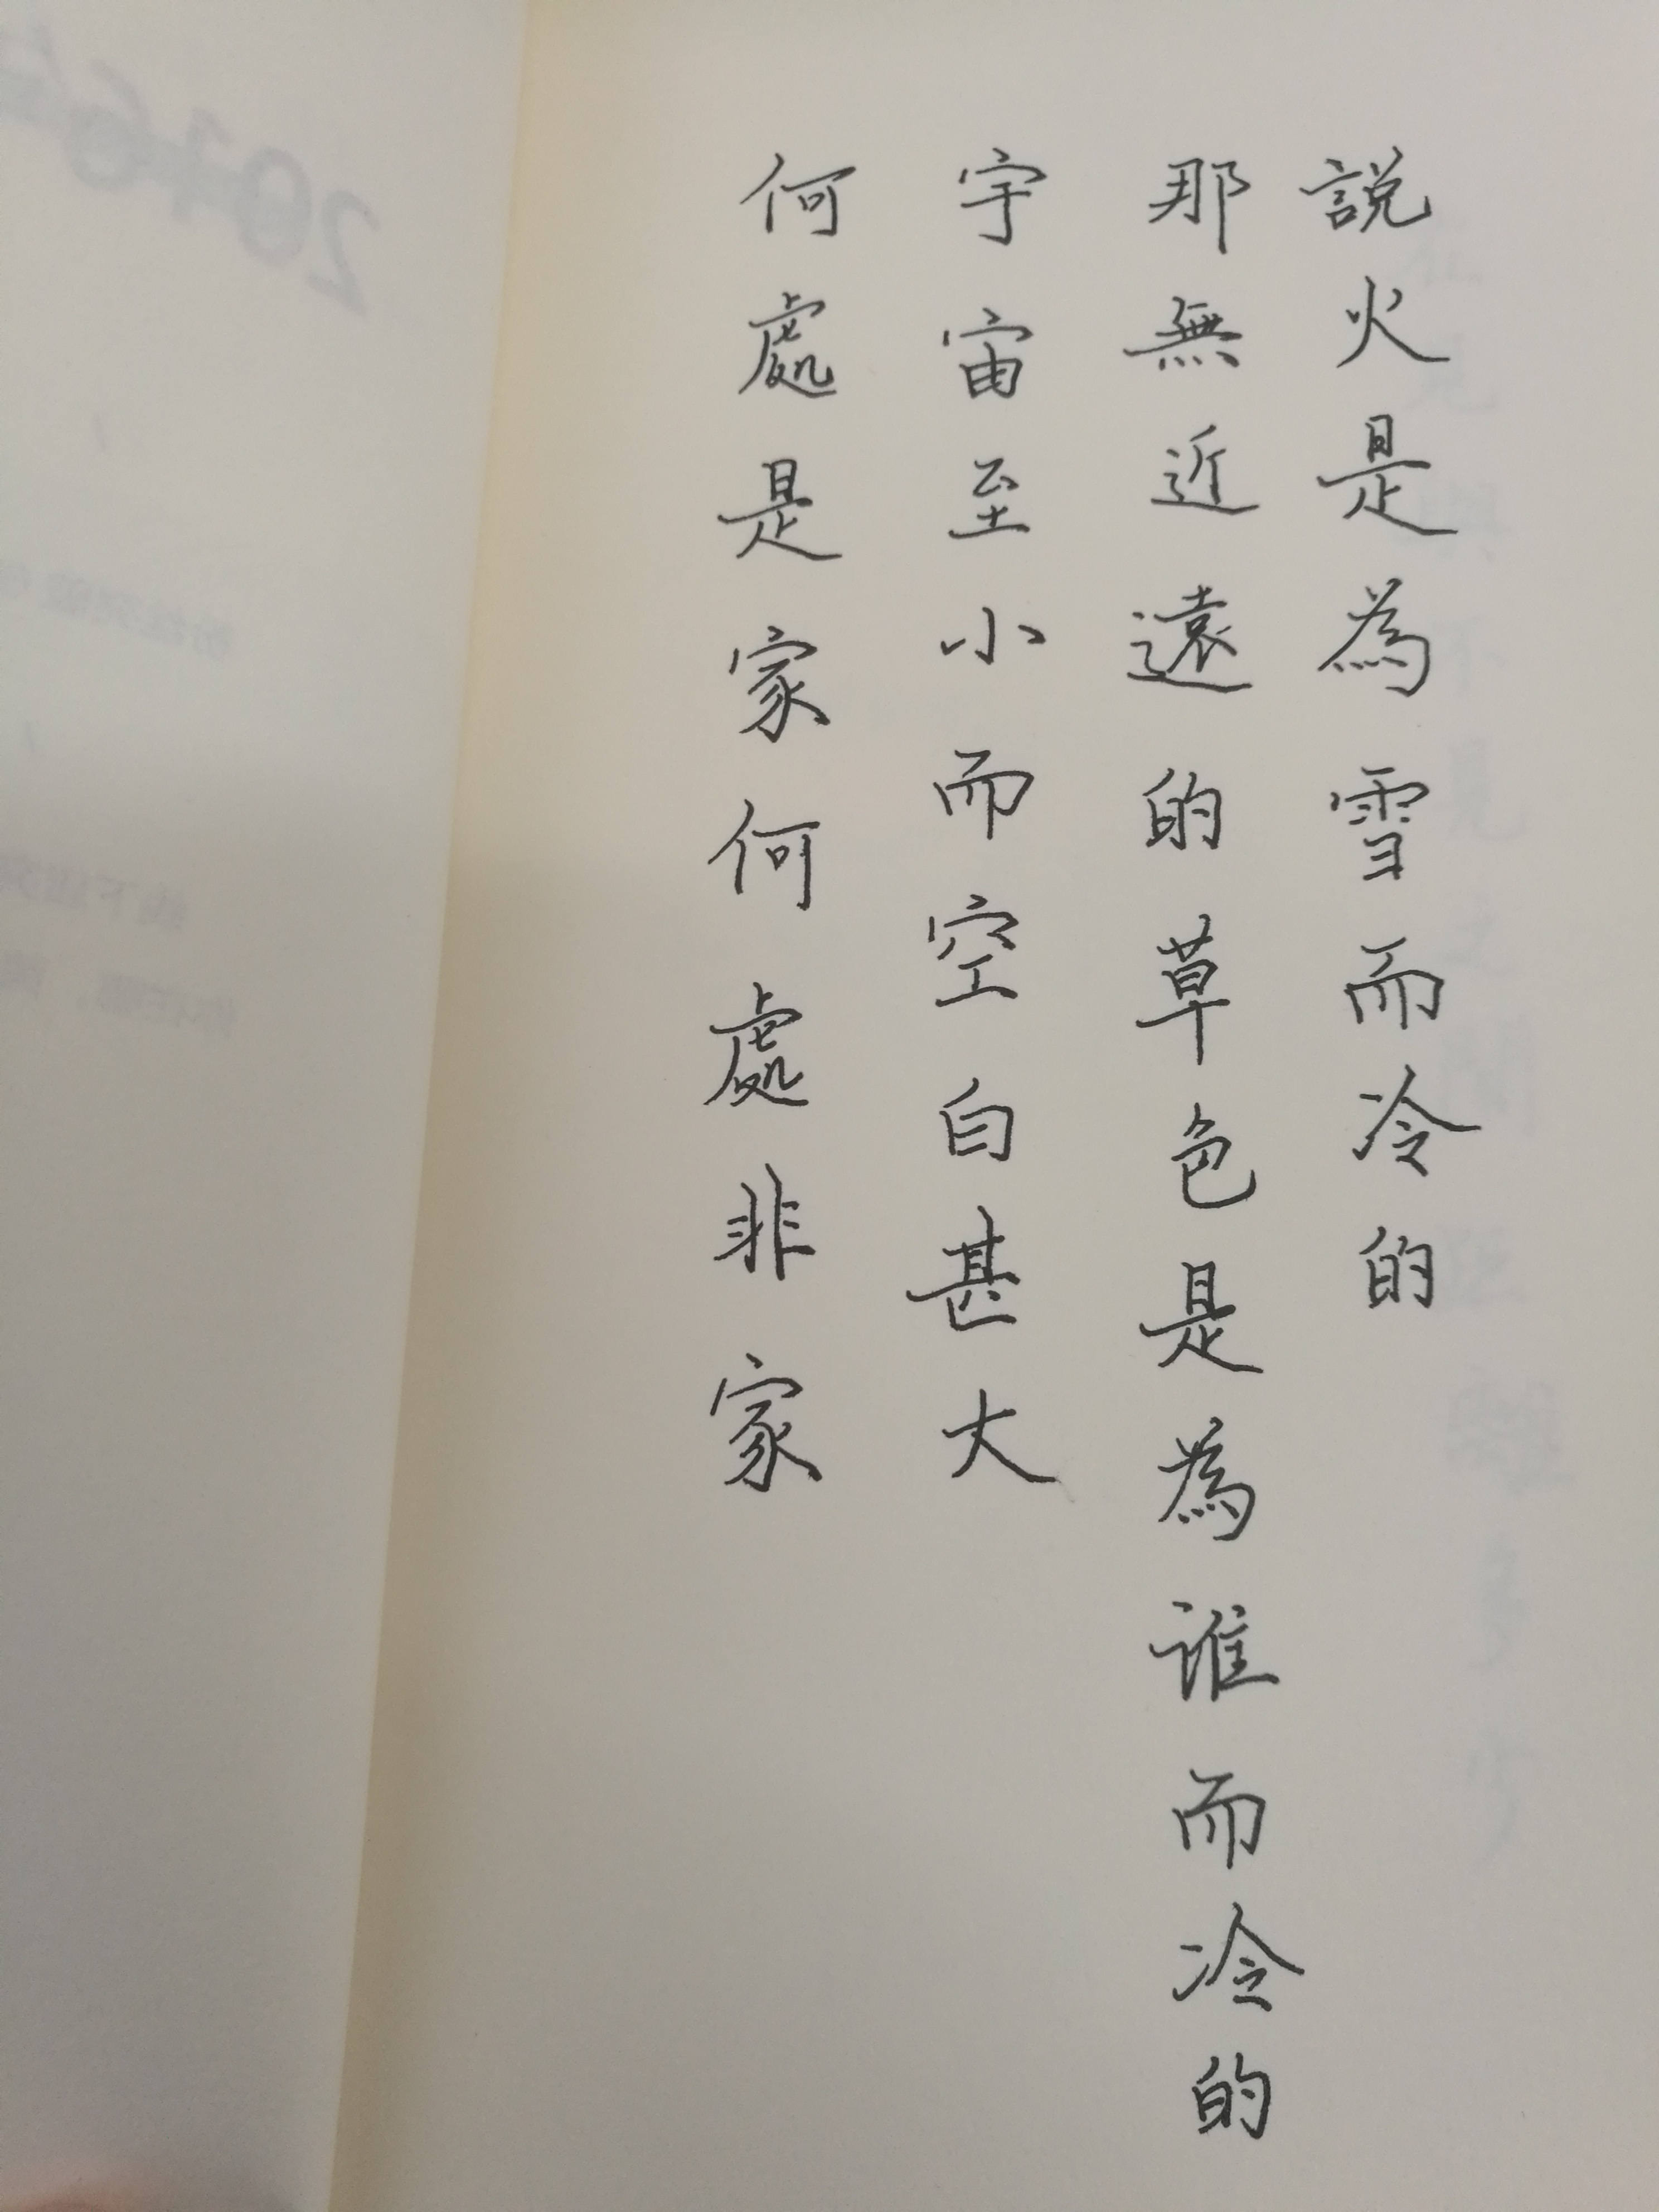 說火是為雪而冷的
那無近遠的草色是為誰而冷的
宇宙至小而空白甚大
何處是家何處非家